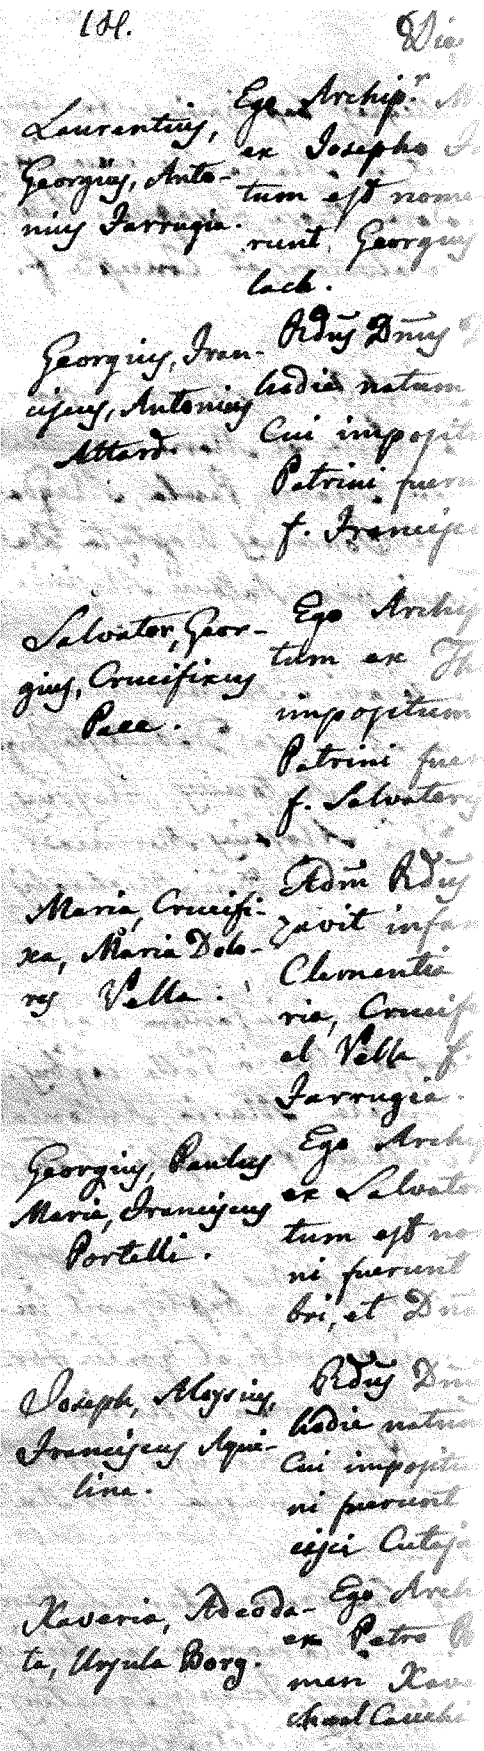 184.
Die
Laurentius,
Georgius, Anto-
nius Farrugia.
Ego Archip.r
ex Josepho
tum est nome
runt Georgius
lach.
Georgius, Fran-
ciscus, Antonius
Attard.
Rdus Dnus
hodie natum
Cui imposit
Patrini fuer
f. Francisc
Salvator, Geor-
gius, Crucifixus
Pace.
Ego Archip
tum ex Th
impositum
Patrini fuer
f. Salvatoris
Maria, Crucifi-
xa, Maria Dolo-
res Vella.
Adm Rdus
zavit infan
Clementia
ria, Crucif
el Vella f.
Farrugia.
Georgius, Paulus
Maria, Franciscus
Portelli.
Ego Archip
ex Salvato
tum est no
ni fuerunt
bri, et Dn
Joseph, Aloysius,
Franciscus Aqui-
lina.
Rdus Dnu
hodie natum
Cui impositu
ni fuerunt
cisci Cutaja
Xaveria, Adeoda-
ta, Ursula Borg.
Ego Arch
ex Petro B
men Xave
chael Cauchi